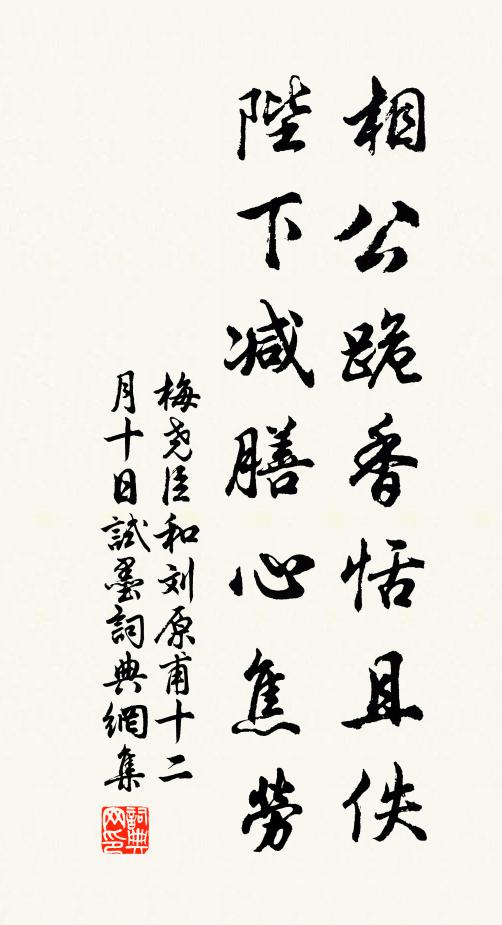 相公跪香恬且佚
陛下减膳心焦勞
梅尧臣和刘原甫十二
月十日試墨詞典網集
詞典网印